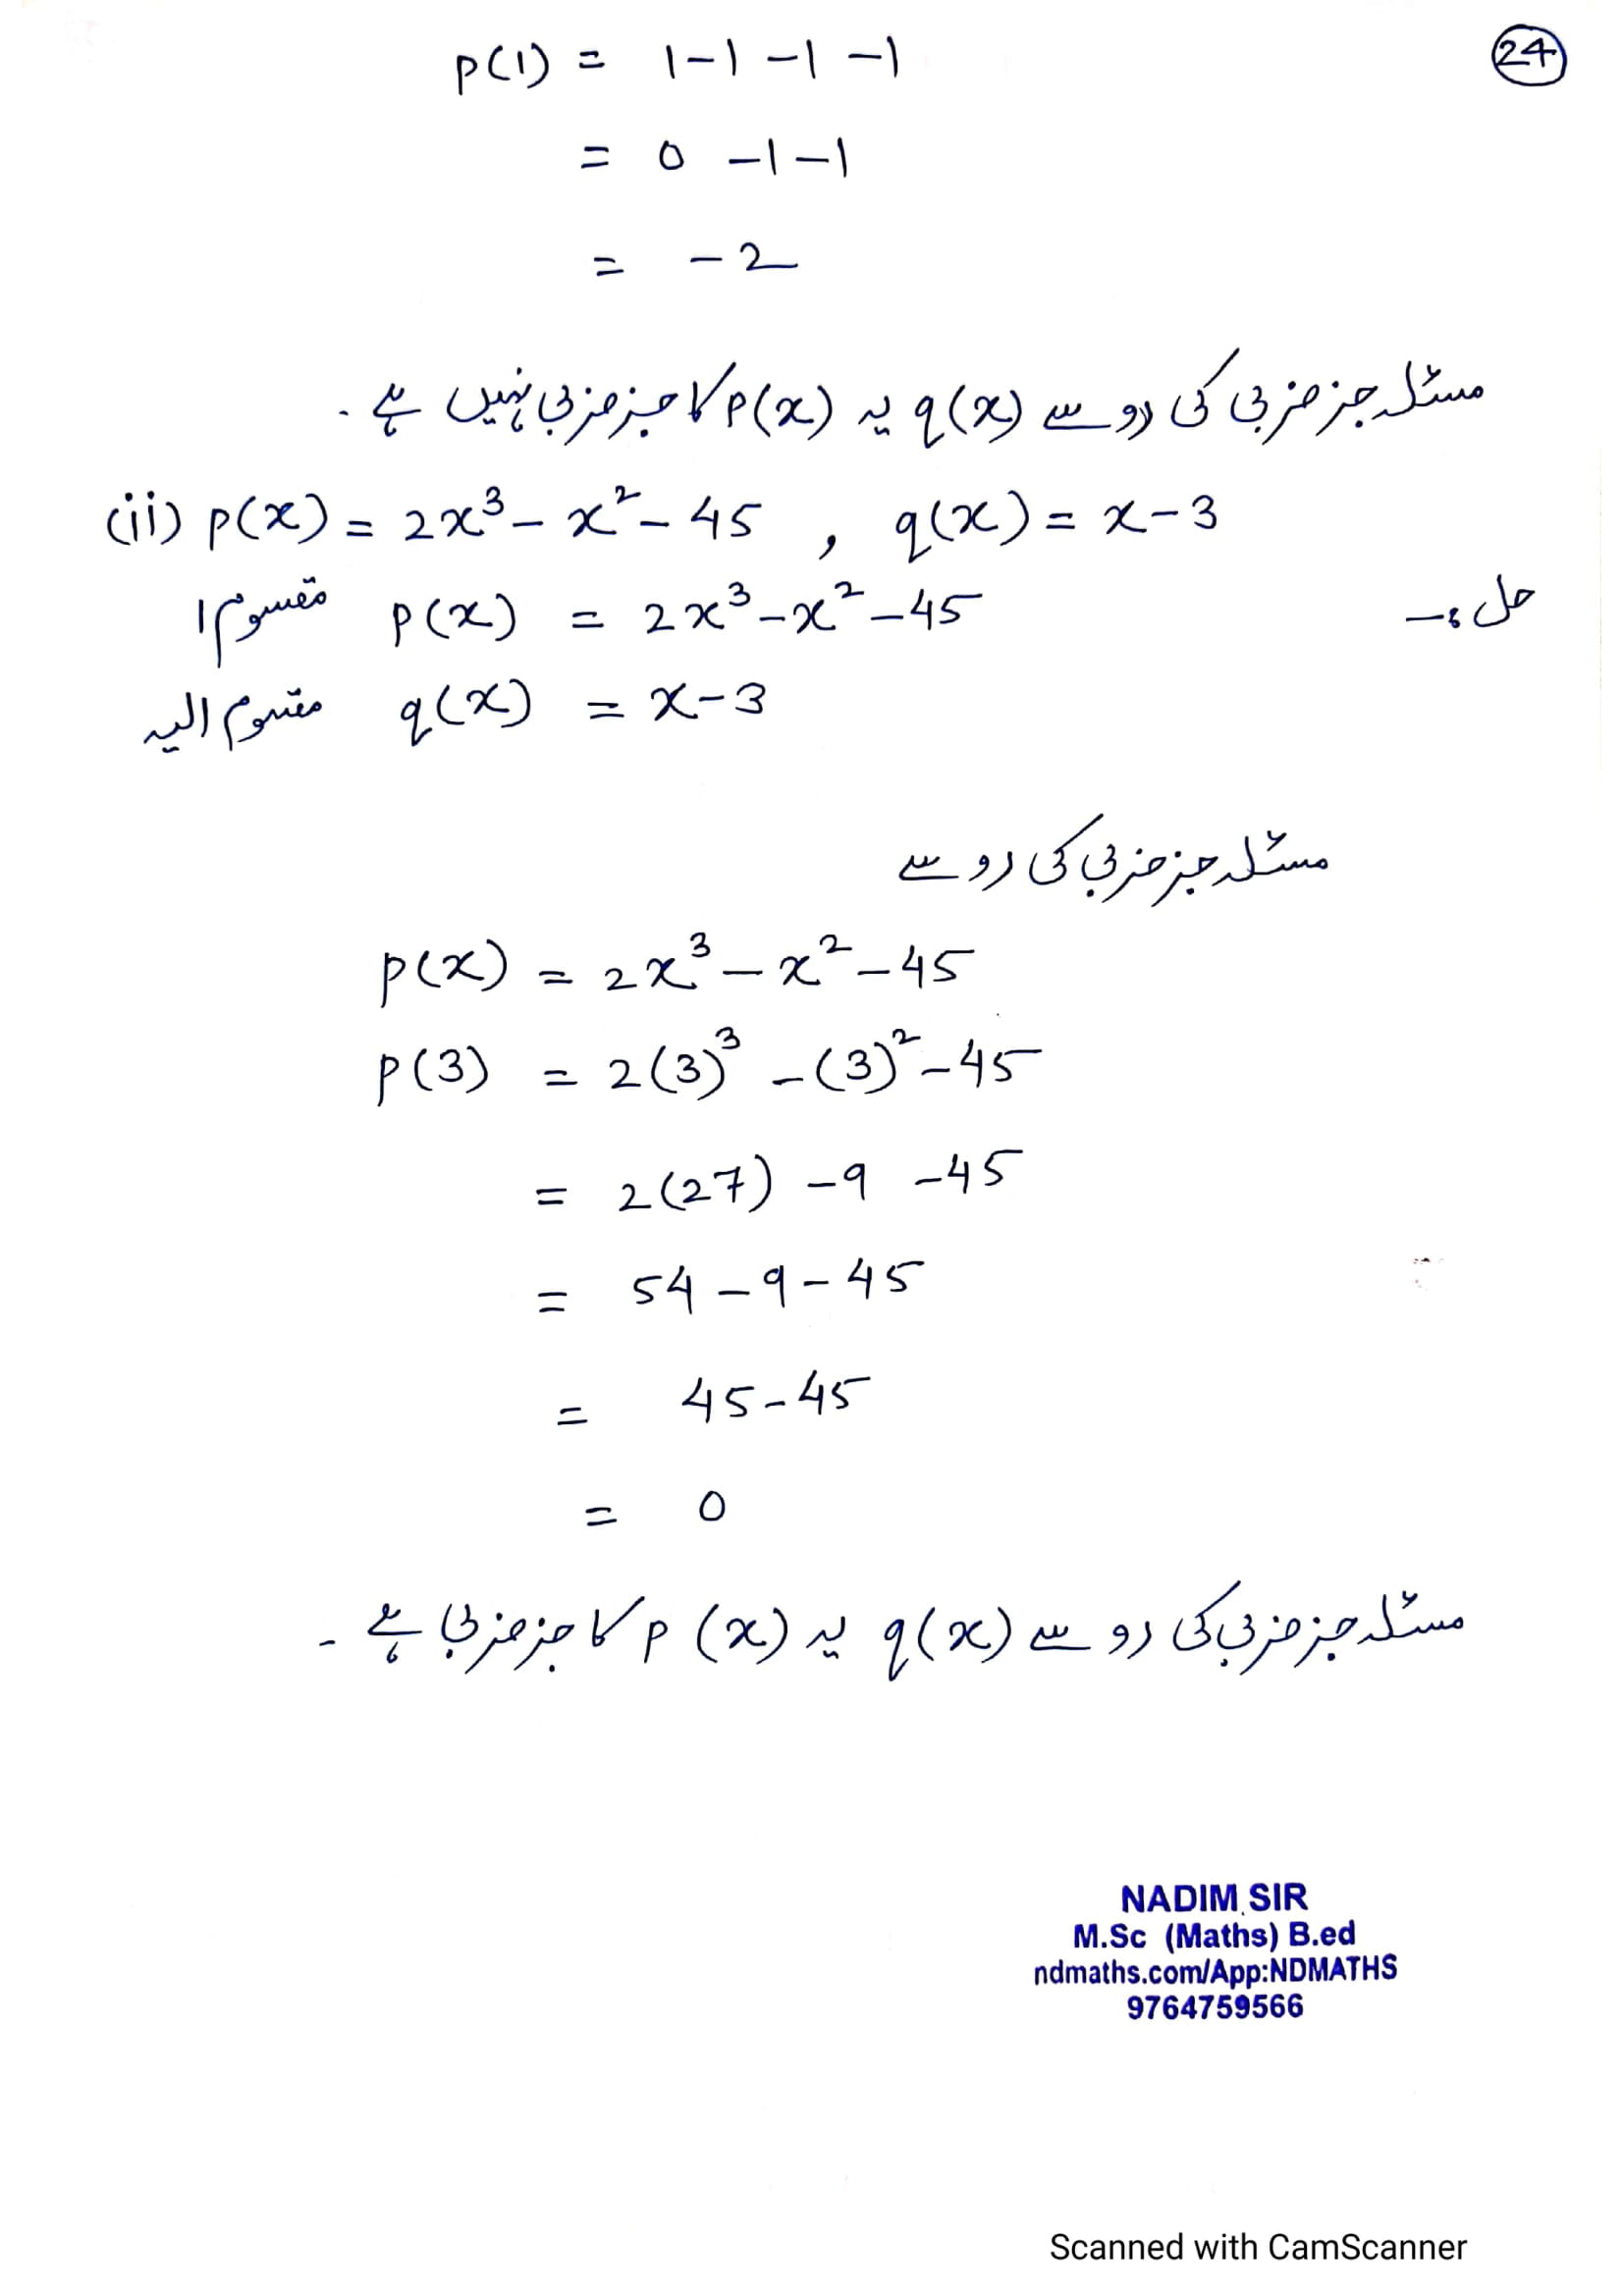 24
p(1) = 1-1 -1 -1
= 0 -1-1
= -2
مسئلہ جز ضربی کی رو سے q(x) یہ p(x) کا جز ضربی نہیں ہے ۔
(ii) p(x) = 2x³ - x² - 45 , q(x) = x-3
حل :-
مقسوم p(x) = 2x³ - x² - 45
مقسوم الیہ q(x) = x-3
مسئلہ جز ضربی کی رو سے
p(x) = 2x³ - x² - 45
p(3) = 2(3)³ - (3)² - 45
= 2(27) -9 -45
= 54 - 9 - 45
= 45 - 45
= 0
مسئلہ جز ضربی کی رو سے q(x) یہ p(x) کا جز ضربی ہے ۔
NADIM SIR
M.Sc (Maths) B.ed
ndmaths.com/App:NDMATHS
9764759566
Scanned with CamScanner